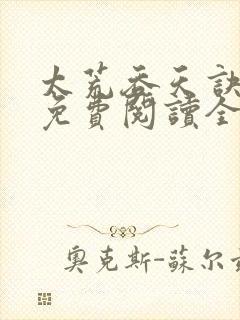 太荒吞天訣
免費閱讀全
奧克斯-蘇尔